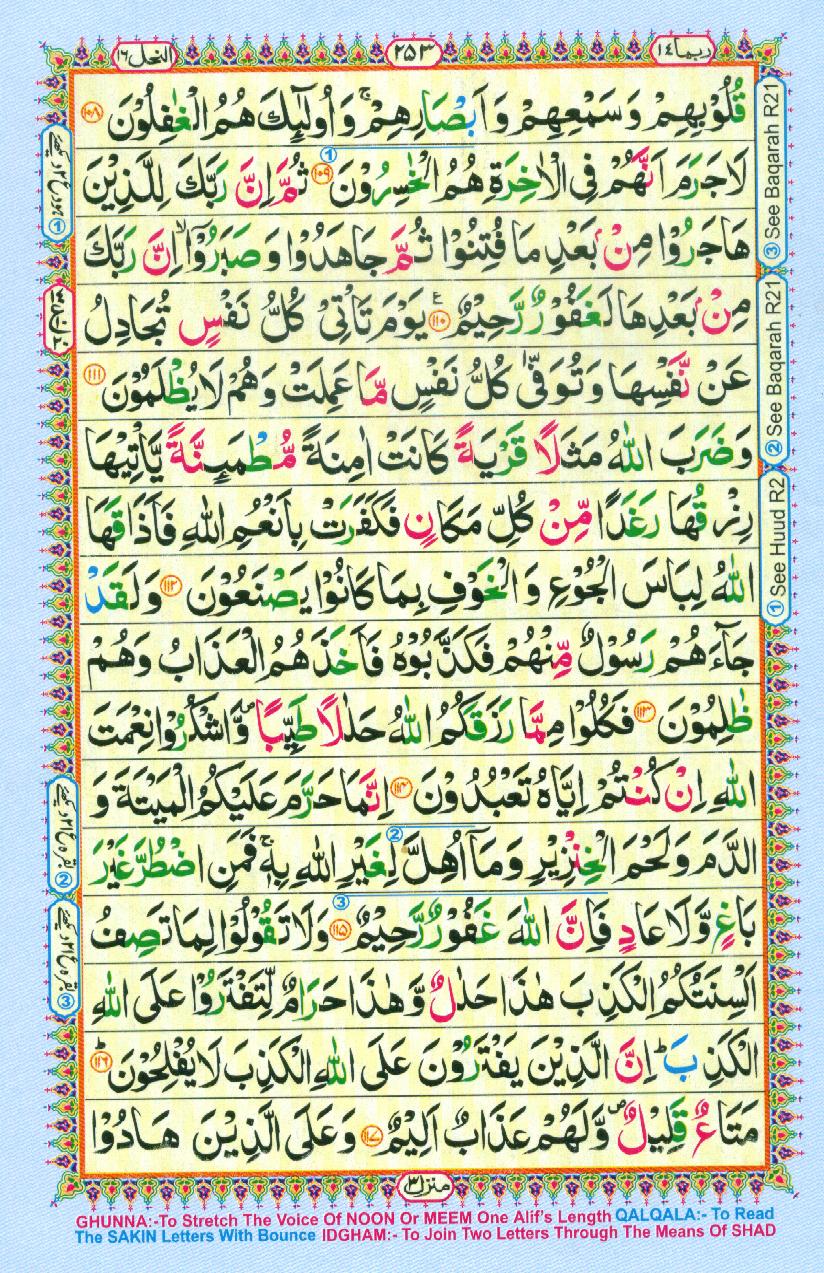 ربما ١٤
٢٥٣
النحل ١٦
قُلُوْبِهِمْ وَسَمْعِهِمْ وَاَبْصَارِهِمْ ۚ وَاُولٰٓئِكَ هُمُ الْغٰفِلُوْنَ ۝١٠٨
لَا جَرَمَ اَنَّهُمْ فِي الْاٰخِرَةِ هُمُ الْخٰسِرُوْنَ ۝١٠٩ ثُمَّ اِنَّ رَبَّكَ لِلَّذِيْنَ
هَاجَرُوْا مِنْۢ بَعْدِ مَا فُتِنُوْا ثُمَّ جَاهَدُوْا وَصَبَرُوْٓا ۙ اِنَّ رَبَّكَ
مِنْۢ بَعْدِهَا لَغَفُوْرٌ رَّحِيْمٌ ۝١١٠ يَوْمَ تَاْتِيْ كُلُّ نَفْسٍ تُجَادِلُ
عَنْ نَّفْسِهَا وَتُوَفّٰى كُلُّ نَفْسٍ مَّا عَمِلَتْ وَهُمْ لَا يُظْلَمُوْنَ ۝١١١
وَضَرَبَ اللّٰهُ مَثَلًا قَرْيَةً كَانَتْ اٰمِنَةً مُّطْمَئِنَّةً يَّاْتِيْهَا
رِزْقُهَا رَغَدًا مِّنْ كُلِّ مَكَانٍ فَكَفَرَتْ بِاَنْعُمِ اللّٰهِ فَاَذَاقَهَا
اللّٰهُ لِبَاسَ الْجُوْعِ وَالْخَوْفِ بِمَا كَانُوْا يَصْنَعُوْنَ ۝١١٢ وَلَقَدْ
جَآءَهُمْ رَسُوْلٌ مِّنْهُمْ فَكَذَّبُوْهُ فَاَخَذَهُمُ الْعَذَابُ وَهُمْ
ظٰلِمُوْنَ ۝١١٣ فَكُلُوْا مِمَّا رَزَقَكُمُ اللّٰهُ حَلٰلًا طَيِّبًا ۪ وَّاشْكُرُوْا نِعْمَتَ
اللّٰهِ اِنْ كُنْتُمْ اِيَّاهُ تَعْبُدُوْنَ ۝١١٤ اِنَّمَا حَرَّمَ عَلَيْكُمُ الْمَيْتَةَ وَ
الدَّمَ وَلَحْمَ الْخِنْزِيْرِ وَمَآ اُهِلَّ لِغَيْرِ اللّٰهِ بِهٖ ۚ فَمَنِ اضْطُرَّ غَيْرَ
بَاغٍ وَّلَا عَادٍ فَاِنَّ اللّٰهَ غَفُوْرٌ رَّحِيْمٌ ۝١١٥ وَلَا تَقُوْلُوْا لِمَا تَصِفُ
اَلْسِنَتُكُمُ الْكَذِبَ هٰذَا حَلٰلٌ وَّهٰذَا حَرَامٌ لِّتَفْتَرُوْا عَلَى اللّٰهِ
الْكَذِبَ ۭ اِنَّ الَّذِيْنَ يَفْتَرُوْنَ عَلَى اللّٰهِ الْكَذِبَ لَا يُفْلِحُوْنَ ۝١١٦
مَتَاعٌ قَلِيْلٌ ۠ وَّلَهُمْ عَذَابٌ اَلِيْمٌ ۝١١٧ وَعَلَى الَّذِيْنَ هَادُوْا
③ See Baqarah R21
② See Baqarah R21
① See Huud R2
منزل ٣
GHUNNA:-To Stretch The Voice Of NOON Or MEEM One Alif's Length QALQALA:- To Read
The SAKIN Letters With Bounce IDGHAM:- To Join Two Letters Through The Means Of SHAD